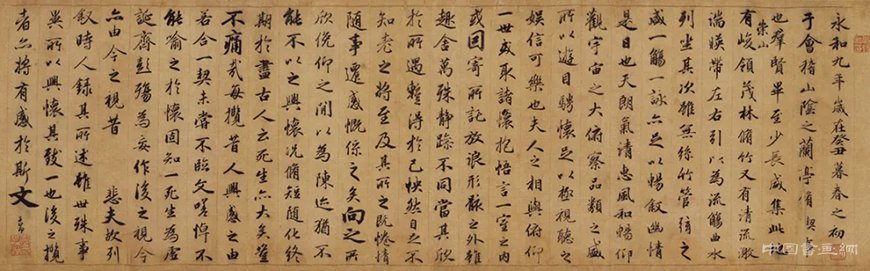 永和九年歲在癸丑暮春之初
于會稽山陰之蘭亭脩禊事
也群賢畢至少長咸集此地
有崇山峻領茂林脩竹又有清流激
湍暎帶左右引以為流觴曲水
列坐其次雖無絲竹管弦之
盛一觴一詠亦足以暢敘幽情
是日也天朗氣清惠風和暢仰
觀宇宙之大俯察品類之盛
所以遊目騁懷足以極視聽之
娛信可樂也夫人之相與俯仰
一世或取諸懷抱悟言一室之內
或因寄所託放浪形骸之外雖
趣舍萬殊靜躁不同當其欣
於所遇暫得於己怏然自足不
知老之將至及其所之既惓情
隨事遷感慨係之矣向之所
欣俛仰之閒以為陳迹猶不
能不以之興懷況脩短隨化終
期於盡古人云死生亦大矣豈
不痛哉每攬昔人興感之由
若合一契未嘗不臨文嗟悼不
能喻之於懷固知一死生為虛
誕齊彭殤為妄作後之視今
亦由今之視昔 悲夫故列
敘時人錄其所述雖世殊事
異所以興懷其致一也後之攬
者亦將有感於斯文
中国書画網